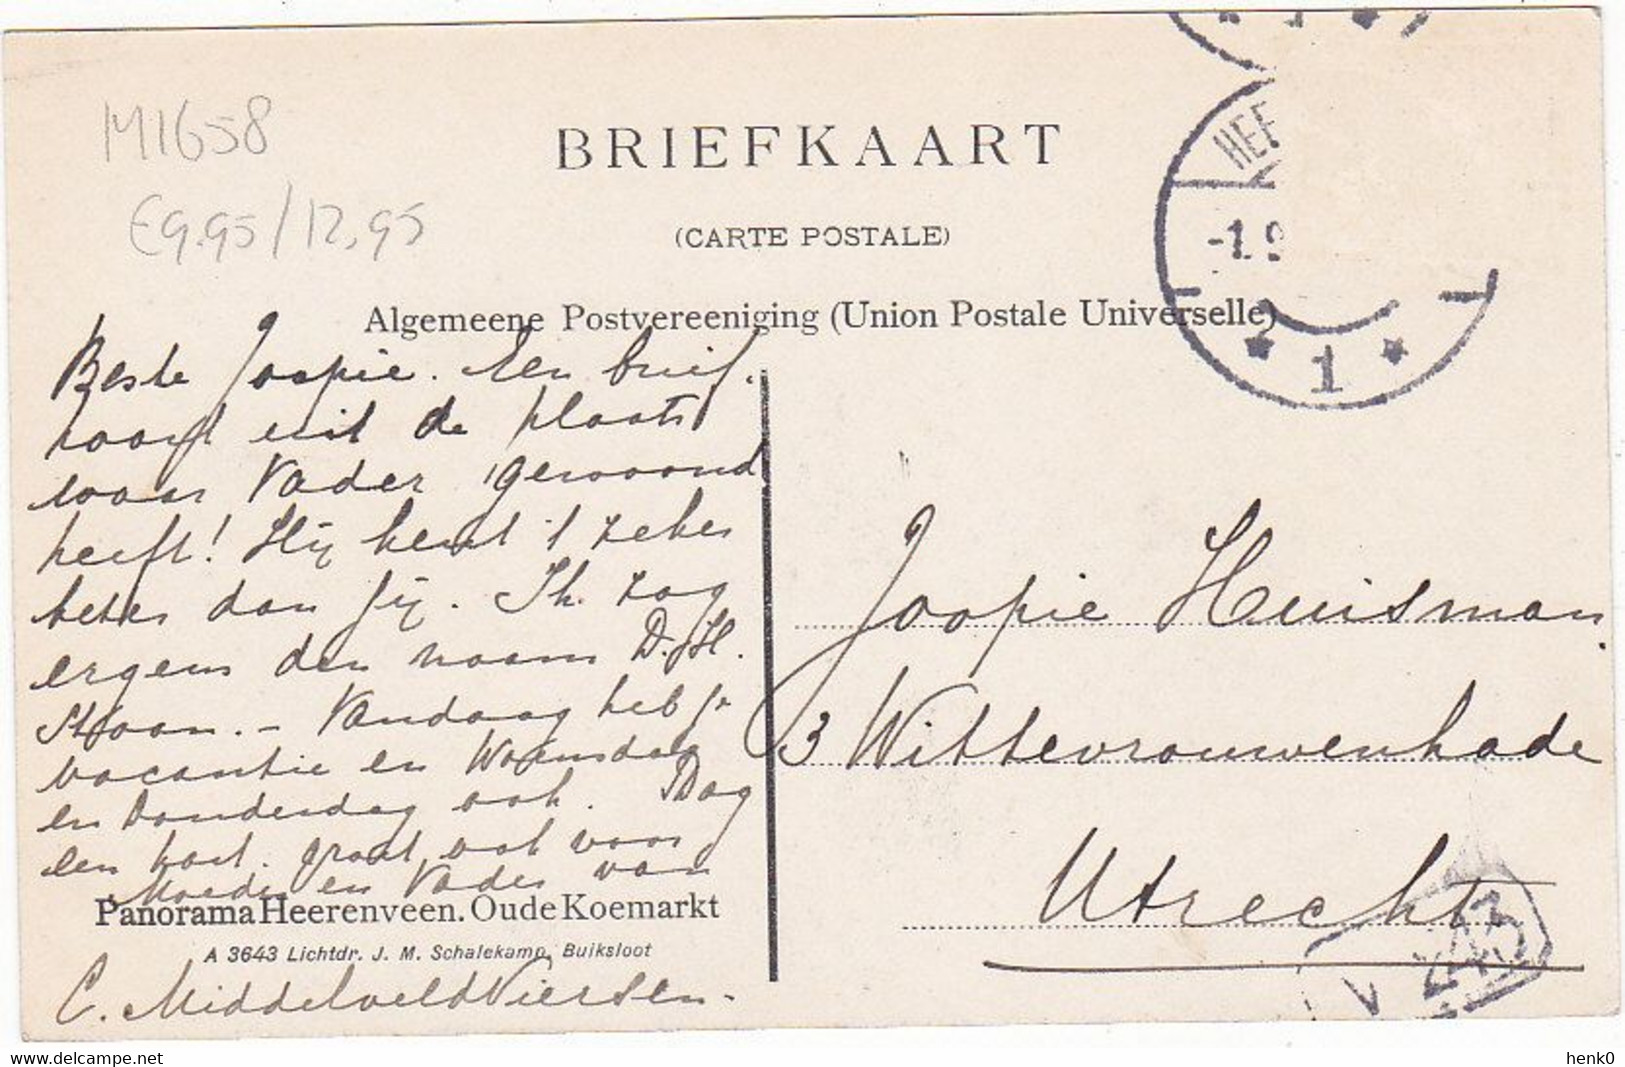 M1658
€9.95/12,95
BRIEFKAART
(CARTE POSTALE)
Algemeene Postvereeniging (Union Postale Universelle)
HEE
-1.9
1
Beste Joopie. Een brief.
kaart uit de plaats
waar Vader gewoond
heeft! Hij kent 't zeker
beter dan jij. Ik zag
ergens den naam D.J.H.
Staan. – Vandaag heb je
vacantie en Woensdag
en Donderdag ook. Dag
een kort. groet ook voor
Moeder en Vader van
Panorama Heerenveen. Oude Koemarkt
A 3643 Lichtdr. J. M. Schalekamp, Buiksloot
C. Middelveld Viersen.
Joopie Huisman.
3 Wittevrouwenkade
Utrecht
delcampe.net
henk0